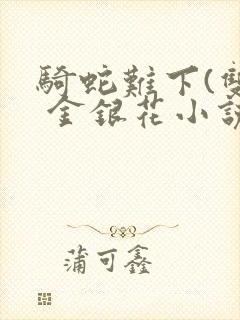 騎蛇難下(雙
金銀花小說
蒲可鑫